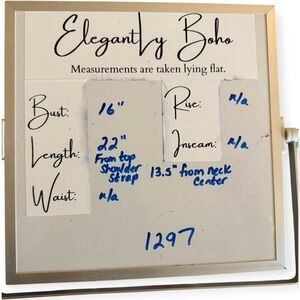 Elegantly Boho
Measurements are taken lying flat.
Bust: 16" Rise: n/a
Length: 22" Inseam: n/a
From top
shoulder
strap
13.5" from neck
center
Waist: n/a
1297